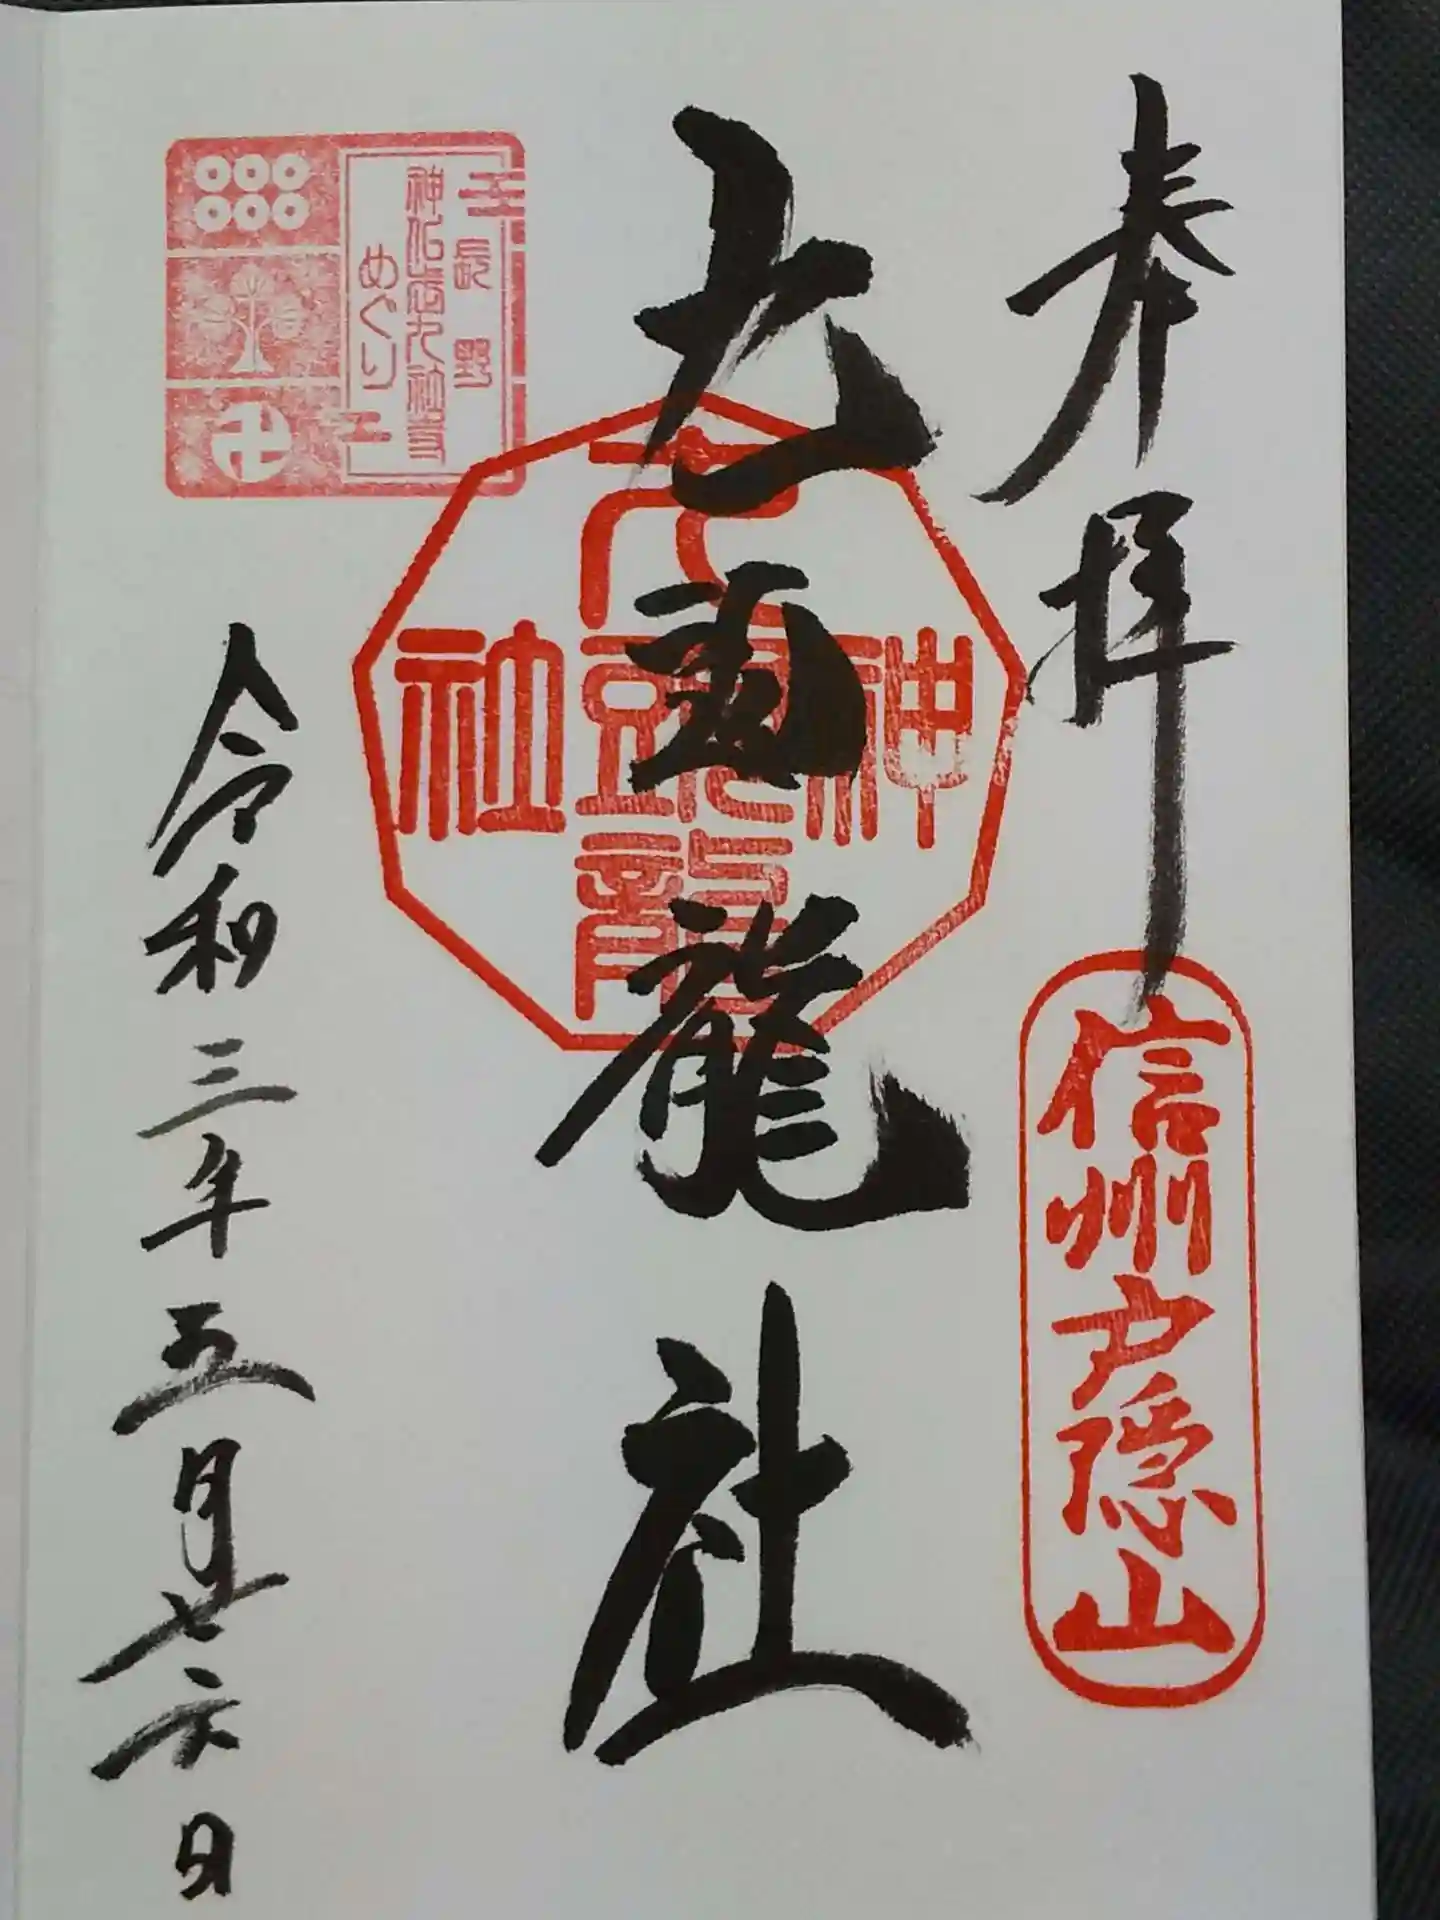 奉拝
信州戸隠山
九頭龍社
九頭龍
神社
長野
神仏古九社寺
めぐり
令和三年五月廿六日